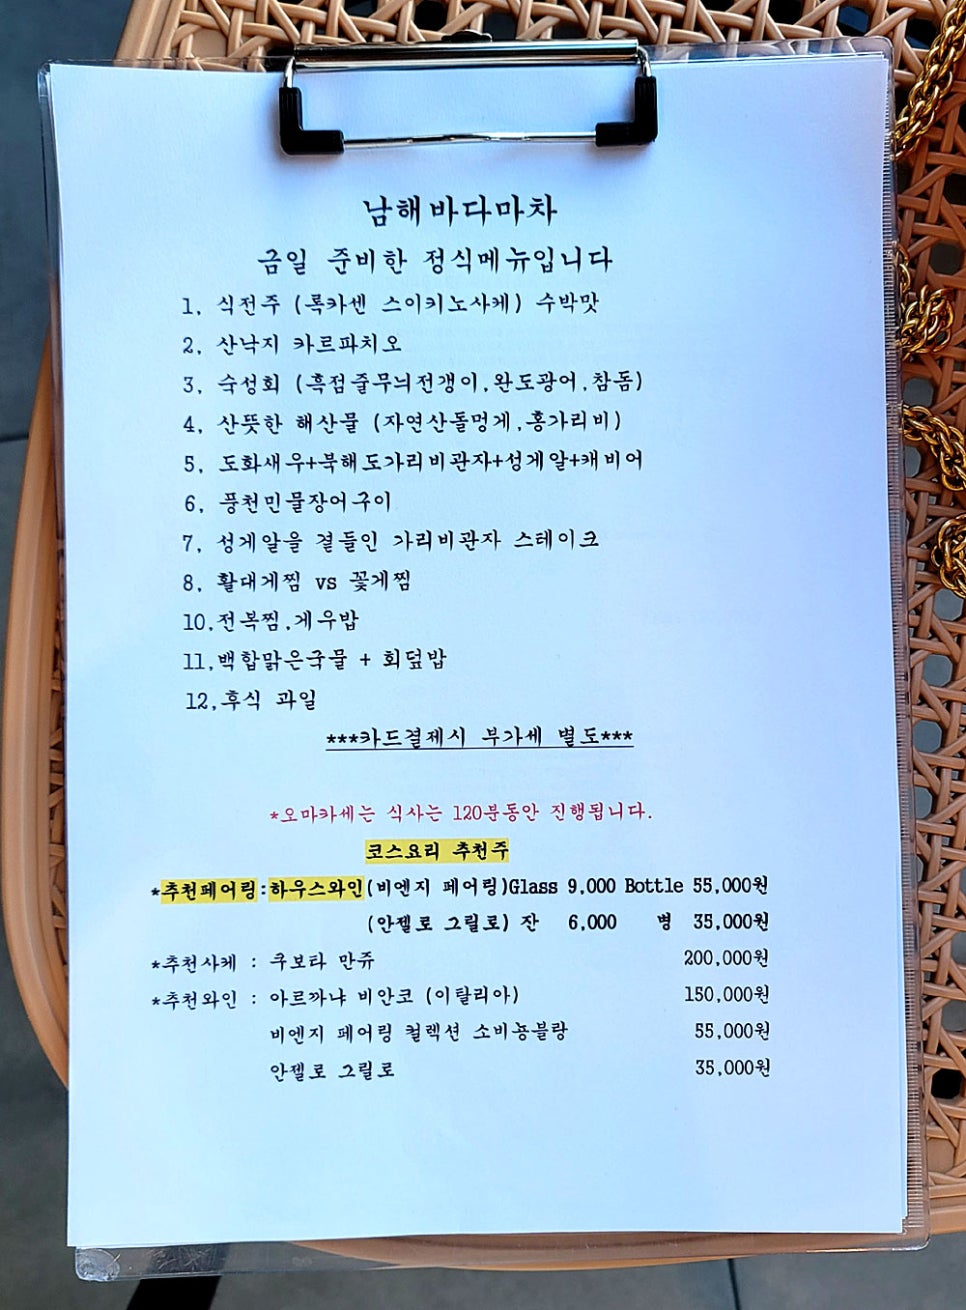 남해바다마차
금일 준비한 정식메뉴입니다
1. 식전주 (록카센 스이키노사케) 수박맛
2. 산낙지 카르파치오
3. 숙성회 (흑점줄무늬전갱이.완도광어.참돔)
4. 산뜻한 해산물 (자연산돌멍게.홍가리비)
5. 도화새우+북해도가리비관자+성게알+캐비어
6. 풍천민물장어구이
7. 성게알을 곁들인 가리비관자 스테이크
8. 활대게찜 vs 꽃게찜
10.전복찜.게우밥
11.백합맑은국물 + 회덮밥
12.후식 과일
***카드결제시 부가세 별도***
*오마카세는 식사는 120분동안 진행됩니다.
코스요리 추천주
*추천페어링:하우스와인(비엔지 페어링)Glass 9.000 Bottle 55,000원
(안젤로 그릴로) 잔 6.000 병 35,000원
*추천사케 : 쿠보타 만쥬 200,000원
*추천와인 : 아르까냐 비안코 (이탈리아) 150,000원
비엔지 페어링 컬렉션 소비뇽블랑 55,000원
안젤로 그릴로 35,000원